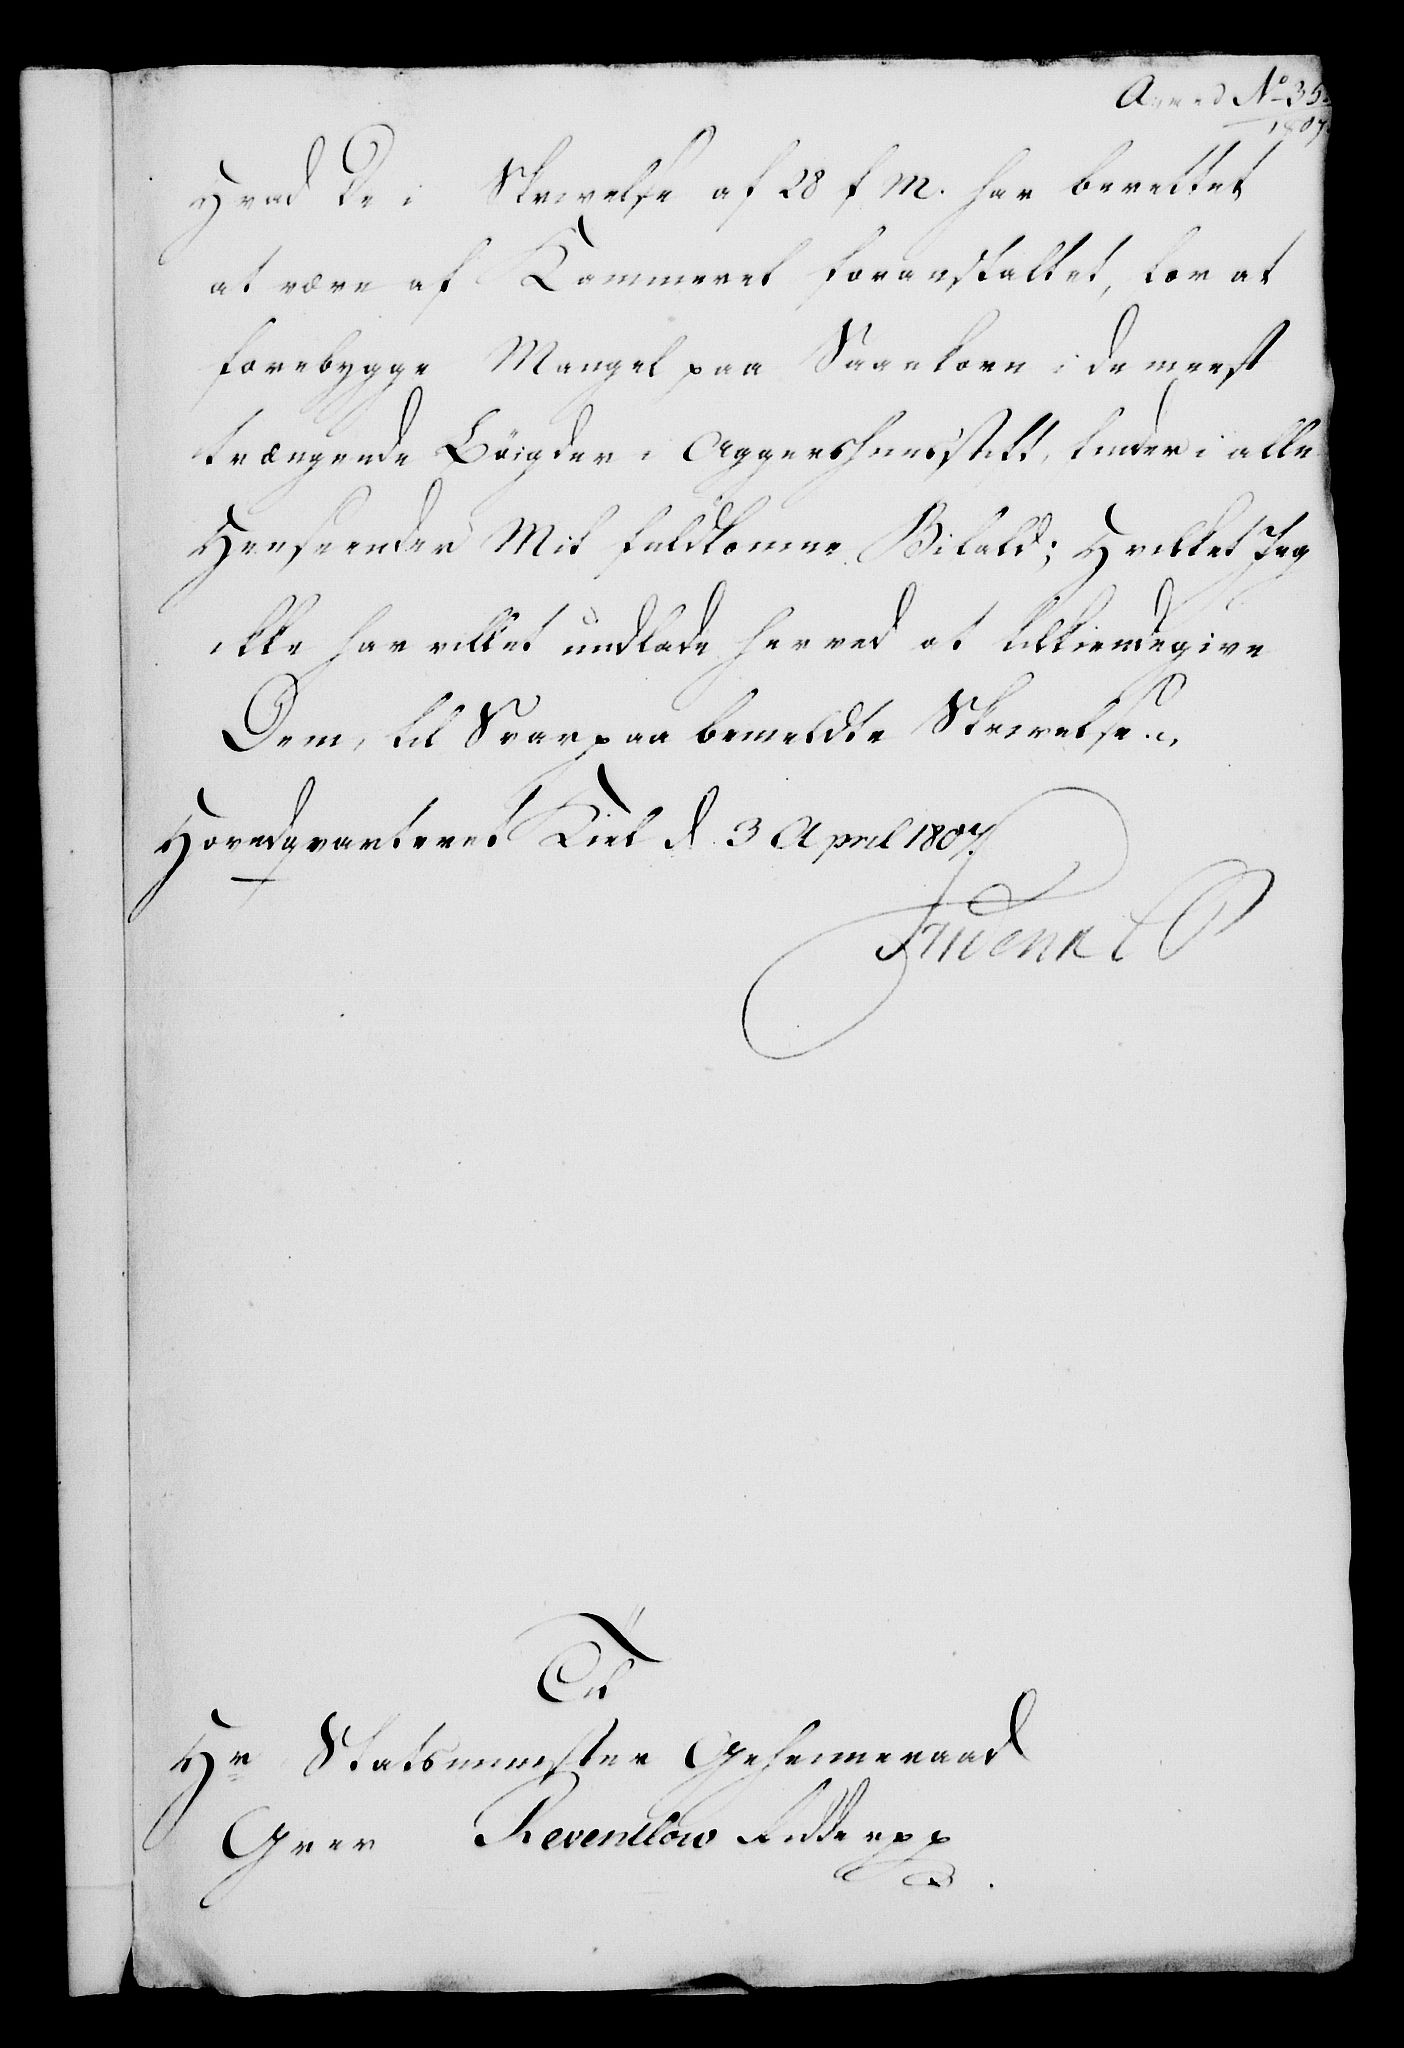 No 35
1807
Hvad De i Skrivelse af 28 f. M. har berettet
at være af Kammeret foranstaltet, for at
forebygge Mangel paa Saaekorn i de meest
trængende Bøigder i Aggershuusstift, finder i alle
Henseender Mit fuldkomne Bifald; Hvilket Jeg
ikke har villet undlade herved at tilkiendegive
Dem, til Svar paa bemeldte Skrivelse.
Hovedqvarteret Kiel d. 3 April 1807.
Friderik C P
Til
Hr Statsminister Geheimeraad
Grev Reventlow Ridder pp